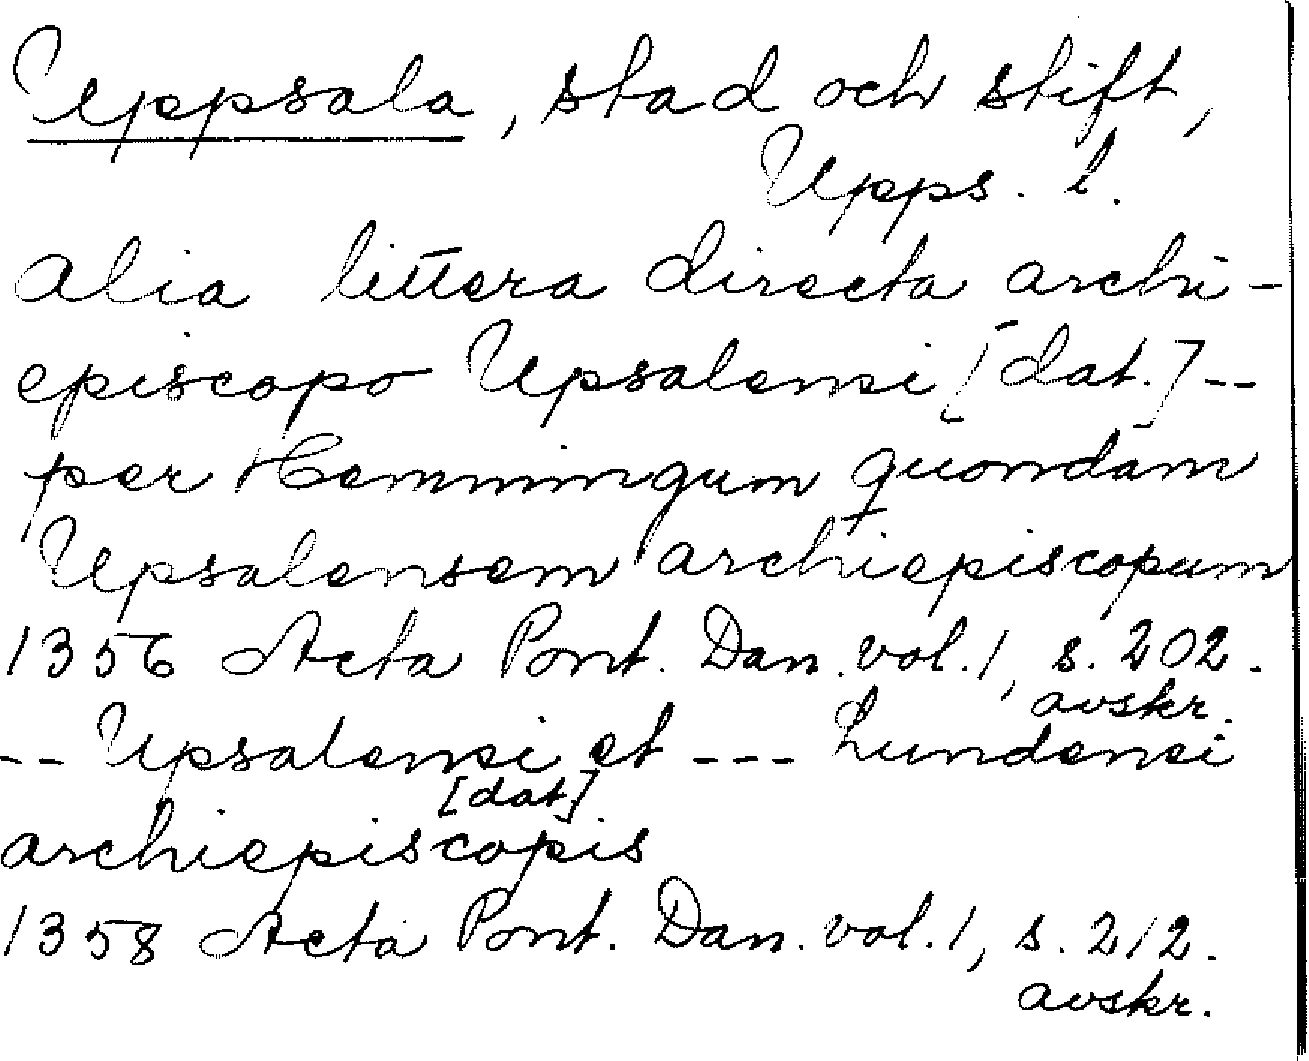 Uppsala, stad och stift,
Upps. l.
Alia littera directa archi-
episcopo Upsalensi [dat.] --
per Hemmingum quondam
Upsalensem archiepiscopum
1356 Acta Pont. Dan. vol. 1, s. 202.
avskr.
-- Upsalensi et --- Lundensi
[dat]
archiepiscopis
1358 Acta Pont. Dan. vol. 1, s. 212.
avskr.